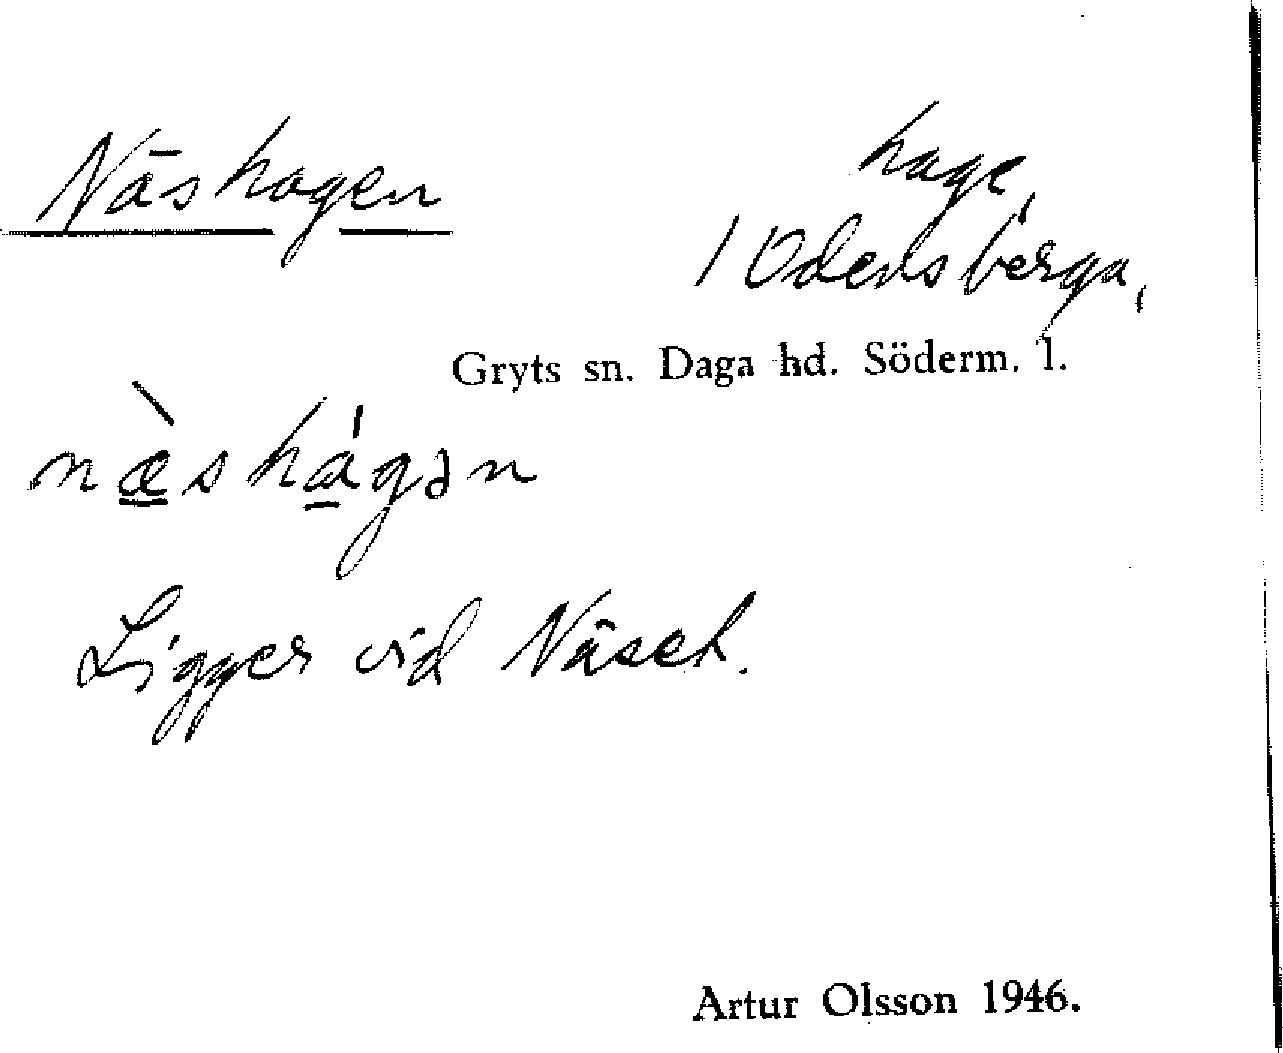 Näshagen
hage,
/ Odensberga,
Gryts sn. Daga hd. Söderm. l.
næ̀shágən
Ligger vid Näset.
Artur Olsson 1946.